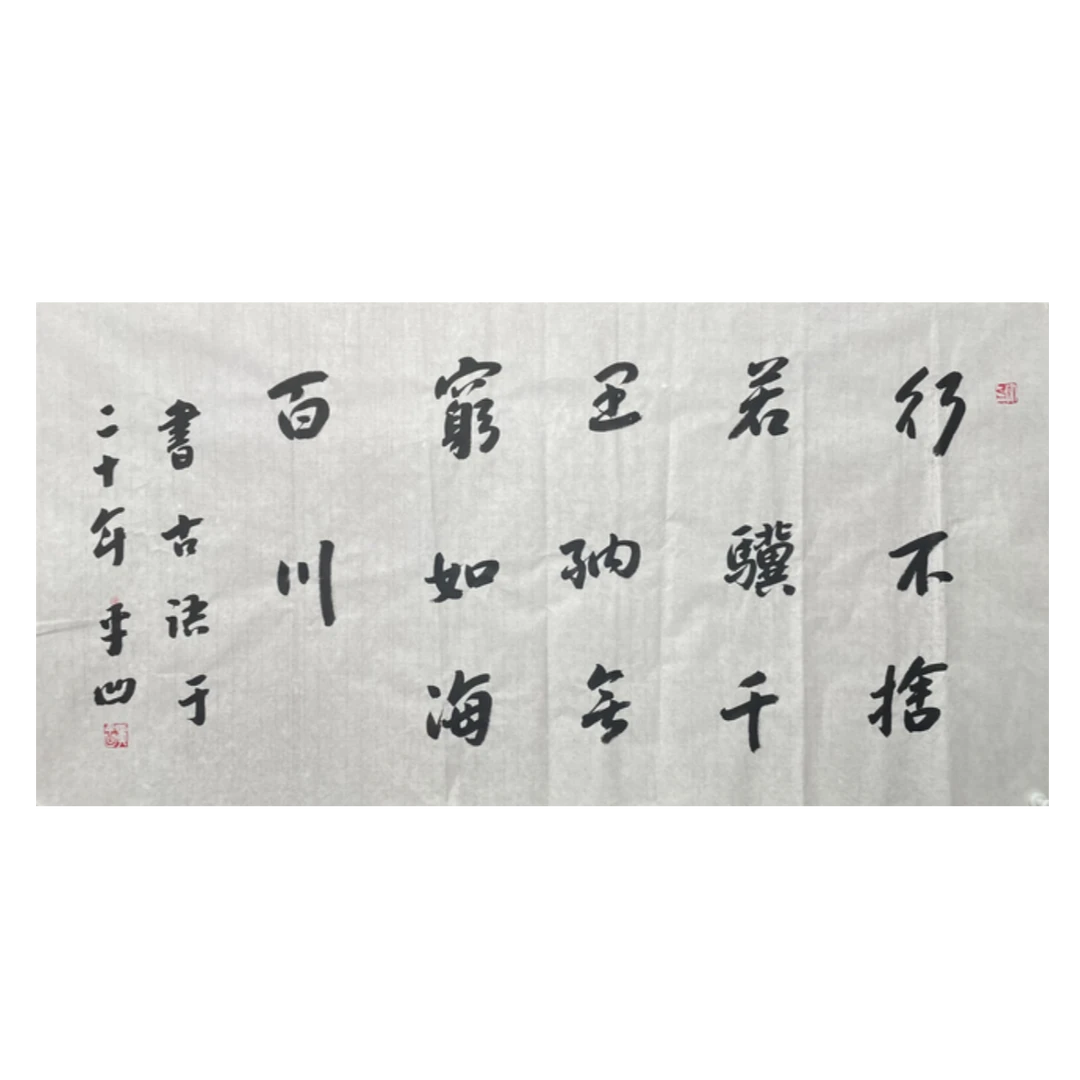 行不捨
若驥千
里納無
窮如海
百川
書古语于
二十年平凹